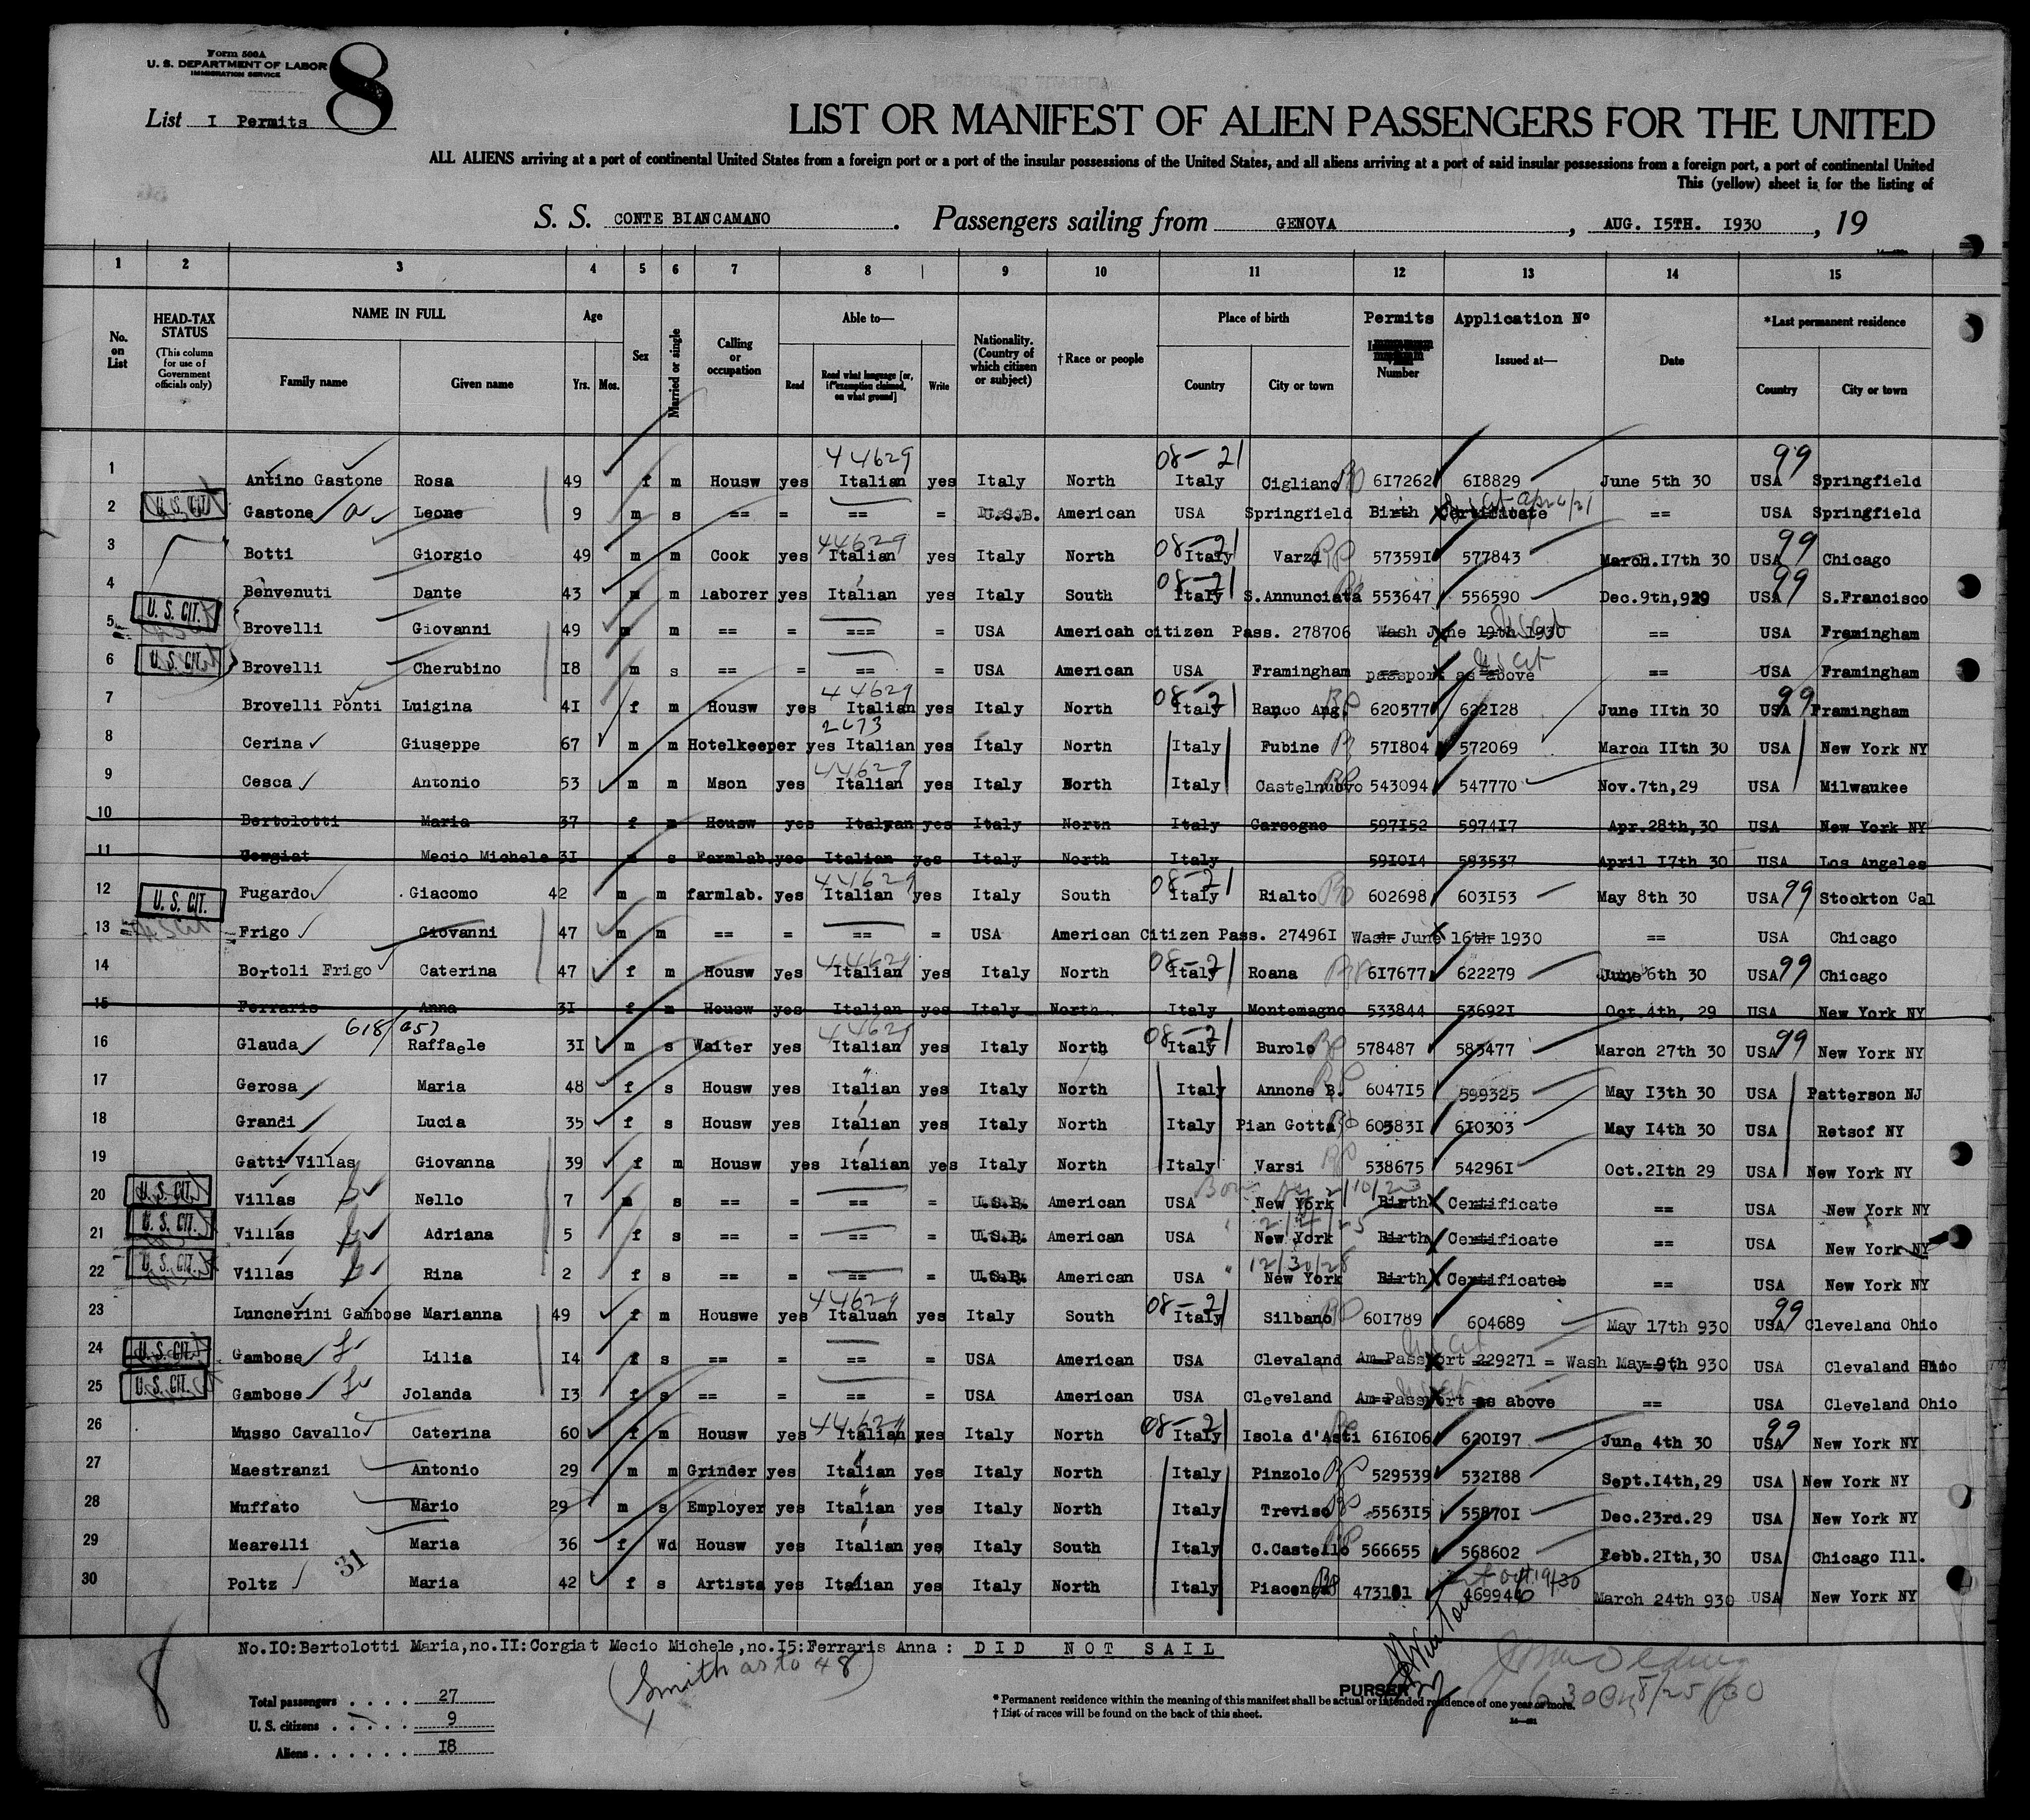 Form 500A
U. S. DEPARTMENT OF LABOR
IMMIGRATION SERVICE
8
List I Permits
LIST OR MANIFEST OF ALIEN PASSENGERS FOR THE UNITED
ALL ALIENS arriving at a port of continental United States from a foreign port or a port of the insular possessions of the United States, and all aliens arriving at a port of said insular possessions from a foreign port, a port of continental United
This (yellow) sheet is for the listing of
S. S. CONTE BIANCAMANO . Passengers sailing from GENOVA , AUG. I5TH. I930 , 19
1 2 3 4 5 6 7 8 9 10 11 12 13 14 15
No. on List
HEAD-TAX STATUS (This column for use of Government officials only)
NAME IN FULL Family name Given name
Age Yrs. Mos.
Sex
Married or single
Calling or occupation
Able to— Read Read what language [or, if exemption claimed, on what ground] Write
Nationality. (Country of which citizen or subject)
† Race or people
Place of birth Country City or town
Permits Number
Application Nº Issued at—
Date
*Last permanent residence Country City or town
44629 08-21 99
1 Antino Gastone Rosa 49 f m Housw yes Italian yes Italy North Italy Cigliano 6I7262 6I8829 June 5th 30 USA Springfield
2 U. S. CIT. Gastone Leone 9 m s == = == = U.S.B. American USA Springfield Birth Certificate == USA Springfield
44629 08-21 99
3 Botti Giorgio 49 m m Cook yes Italian yes Italy North Italy Varzi 57359I 577843 March.I7th 30 USA Chicago
08-21 99
4 Benvenuti Dante 43 m m laborer yes Italian yes Italy South Italy S.Annunciata 553647 556590 Dec.9th,929 USA S.Francisco
5 U. S. CIT. Brovelli Giovanni 49 m m == = === = USA American citizen Pass. 278706 Wash June I9th I930 == USA Framingham
6 U. S. CIT. Brovelli Cherubino I8 m s == = == = USA American USA Framingham passport as above == USA Framingham
44629 08-21 99
7 Brovelli Ponti Luigina 4I f m Housw yes Italian yes Italy North Italy Ranco Ang. 620577 622I28 June IIth 30 USA Framingham
2673
8 Cerina Giuseppe 67 m m Hotelkeeper yes Italian yes Italy North Italy Fubine 57I804 572069 March IIth 30 USA New York NY
44629
9 Cesca Antonio 53 m m Mson yes Italian yes Italy North Italy Castelnuovo 543094 547770 Nov.7th,29 USA Milwaukee
10 Bertolotti Maria 37 f m Housw yes Italyan yes Italy North Italy Carsogno 597I52 5974I7 Apr.28th,30 USA New York NY
11 Corgiat Mecio Michele 3I m s Farmlab. yes Italian yes Italy North Italy 59I0I4 593537 April I7th 30 USA Los Angeles
44629 08-21 99
12 Fugardo Giacomo 42 m m farmlab. yes Italian yes Italy South Italy Rialto 602698 603I53 May 8th 30 USA Stockton Cal
13 U. S. CIT. Frigo Giovanni 47 m m == = == = USA American Citizen Pass. 27496I Wash June I6th I930 == USA Chicago
44629 08-21 99
14 Bortoli Frigo Caterina 47 f m Housw yes Italian yes Italy North Italy Roana 6I7677 622279 June 6th 30 USA Chicago
15 Ferraris Anna 3I f m Housw yes Italian yes Italy North Italy Montemagno 533844 53692I Oct.4th, 29 USA New York NY
44629 08-21 99
16 Glauda Raffaele 3I m s Waiter yes Italian yes Italy North Italy Burolo 578487 583477 March 27th 30 USA New York NY
17 Gerosa Maria 48 f s Housw yes Italian yes Italy North Italy Annone B. 6047I5 599325 May I3th 30 USA Patterson NJ
18 Grandi Lucia 35 f s Housw yes Italian yes Italy North Italy Pian Gotta 60583I 6I0303 May I4th 30 USA Retsof NY
19 Gatti Villas Giovanna 39 f m Housw yes Italian yes Italy North Italy Varsi 538675 54296I Oct.2Ith 29 USA New York NY
20 U. S. CIT. Villas Nello 7 m s == = == = U.S.B. American USA New York Birth Certificate == USA New York NY
21 U. S. CIT. Villas Adriana 5 f s == = == = U.S.B. American USA New York Birth Certificate == USA New York NY
12/30/28
22 U. S. CIT. Villas Rina 2 f s == = == = U.S.B. American USA New York Birth Certificate == USA New York NY
44629 08-21 99
23 Luncherini Gambose Marianna 49 f m Houswe yes Italuan yes Italy South Italy Silbano 60I789 604689 May I7th 930 USA Cleveland Ohio
24 U. S. CIT. Gambose Lilia I4 f s == = == = USA American USA Clevaland Am Passport 22927I = Wash May 9th 930 USA Clevaland Ohio
25 U. S. CIT. Gambose Jolanda I3 f s == = == = USA American USA Cleveland Am Passport as above == USA Cleveland Ohio
44629 08-21 99
26 Musso Cavallo Caterina 60 f m Housw yes Italian yes Italy North Italy Isola d'Asti 6I6I06 620I97 June 4th 30 USA New York NY
27 Maestranzi Antonio 29 m m Grinder yes Italian yes Italy North Italy Pinzolo 529539 532I88 Sept.I4th,29 USA New York NY
28 Muffato Mario 29 m s Employer yes Italian yes Italy North Italy Treviso 5563I5 55870I Dec.23rd.29 USA New York NY
29 Mearelli Maria 36 f Wd Housw yes Italian yes Italy South Italy C.Castello 566655 568602 Febb.2Ith,30 USA Chicago Ill.
31
30 Poltz Maria 42 f s Artista yes Italian yes Italy North Italy Piacenza March 24th 930 USA New York NY
No.IO:Bertolotti Maria,no.II:Corgiat Mecio Michele,no.I5:Ferraris Anna: DID NOT SAIL
(Smith as to 48)
8
Total passengers . . . . 27
U. S. citizens . . . . . 9
Aliens . . . . . . I8
PURSER
* Permanent residence within the meaning of this manifest shall be actual or intended residence of one year or more.
† List of races will be found on the back of this sheet.